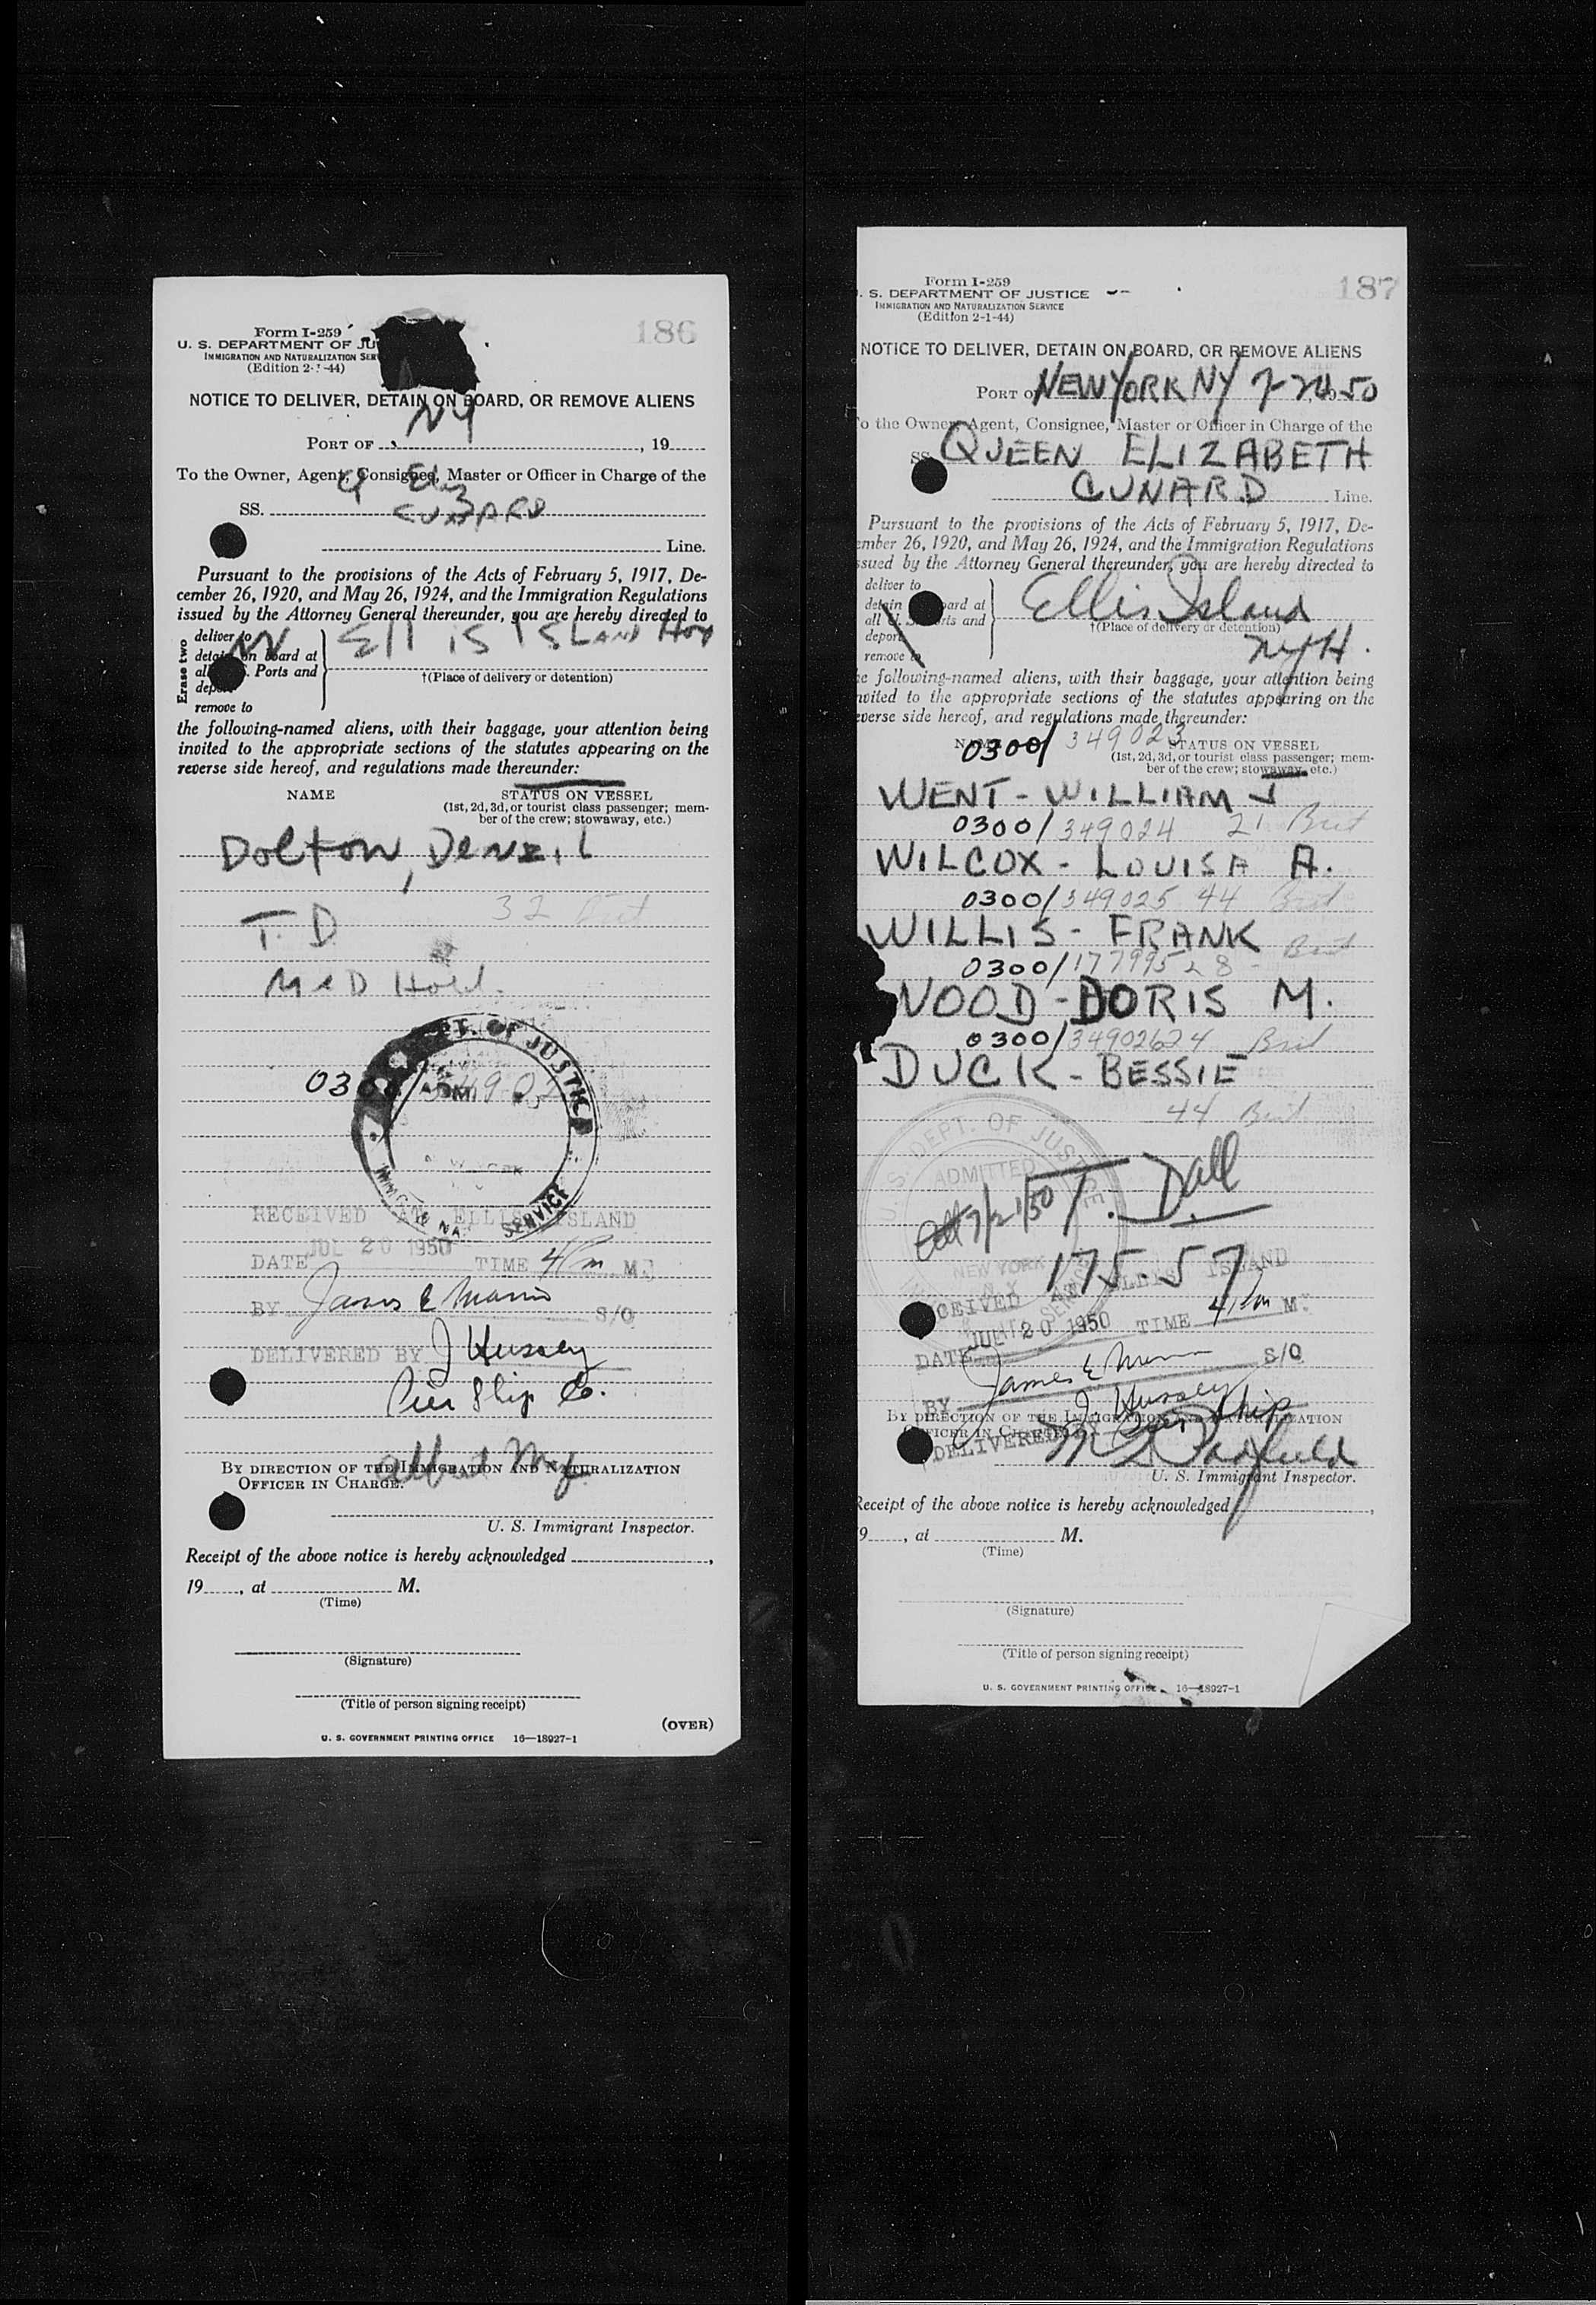 186
Form I-259
U. S. DEPARTMENT OF JU
IMMIGRATION AND NATURALIZATION SER
(Edition 2-1-44)
NOTICE TO DELIVER, DETAIN ON BOARD, OR REMOVE ALIENS
NY
PORT OF , 19
To the Owner, Agent, Consignee, Master or Officer in Charge of the
SS. CUNARD
Line.
Pursuant to the provisions of the Acts of February 5, 1917, De-
cember 26, 1920, and May 26, 1924, and the Immigration Regulations
issued by the Attorney General thereunder, you are hereby directed to
Erase two
deliver to
Ellis ISLAND
detain on board at
all . Ports and
†(Place of delivery or detention)
remove to
the following-named aliens, with their baggage, your attention being
invited to the appropriate sections of the statutes appearing on the
reverse side hereof, and regulations made thereunder:
NAME STATUS ON VESSEL
(1st, 2d, 3d, or tourist class passenger; mem-
ber of the crew; stowaway, etc.)
Dolton, Denzil
32 Brit
T. D
MED Hold.
PT. OF JUSTICE
SERVICE
RECEIVED AT ELLIS ISLAND
DATE JUL 20 1950 TIME 4 Pm M.
BY James E S/O
DELIVERED BY J Hussey
Pier Slip Co.
BY DIRECTION OF THE IMMIGRATION AND NATURALIZATION
OFFICER IN CHARGE.
U. S. Immigrant Inspector.
Receipt of the above notice is hereby acknowledged ,
19 , at M.
(Time)
(Signature)
(Title of person signing receipt)
(OVER)
U. S. GOVERNMENT PRINTING OFFICE 16—18927-1
187
Form I-259
. S. DEPARTMENT OF JUSTICE
IMMIGRATION AND NATURALIZATION SERVICE
(Edition 2-1-44)
NOTICE TO DELIVER, DETAIN ON BOARD, OR REMOVE ALIENS
PORT OF NEW YORK NY 7-20 50
To the Owner, Agent, Consignee, Master or Officer in Charge of the
SS. QUEEN ELIZABETH
CUNARD Line.
Pursuant to the provisions of the Acts of February 5, 1917, De-
ember 26, 1920, and May 26, 1924, and the Immigration Regulations
ssued by the Attorney General thereunder, you are hereby directed to
deliver to
detain oard at
Ellis Island
all U. rts and
†(Place of delivery or detention)
deport
NYH.
remove to
e following-named aliens, with their baggage, your attention being
nvited to the appropriate sections of the statutes appearing on the
everse side hereof, and regulations made thereunder:
0300/349023 STATUS ON VESSEL
(1st, 2d, 3d, or tourist class passenger; mem-
ber of the crew; stowaway, etc.)
WENT - WILLIAM J
0300/349024 21 Brit
WILCOX - LOUISA A.
0300/349025 44 Brit
WILLIS - FRANK Brit
0300/177995 28
WOOD - DORIS M.
0300/349026 24 Brit
DUCK - BESSIE
44 Brit
U. S. DEPT. OF JUSTICE
ADMITTED
7/21/50
T. D. all
NEW YORK
175.57
CEIVED AT ELLIS ISLAND
DATE JUL 20 1950 TIME 4 Pm M.
BY James E S/O
J. Hussey
DELIVERED BY Pier Ship
BY DIRECTION OF THE IMMIGRATION AND NATURALIZATION
OFFICER IN CHARGE
U. S. Immigrant Inspector.
Receipt of the above notice is hereby acknowledged ,
9 , at M.
(Time)
(Signature)
(Title of person signing receipt)
U. S. GOVERNMENT PRINTING OFFICE 16—18927-1